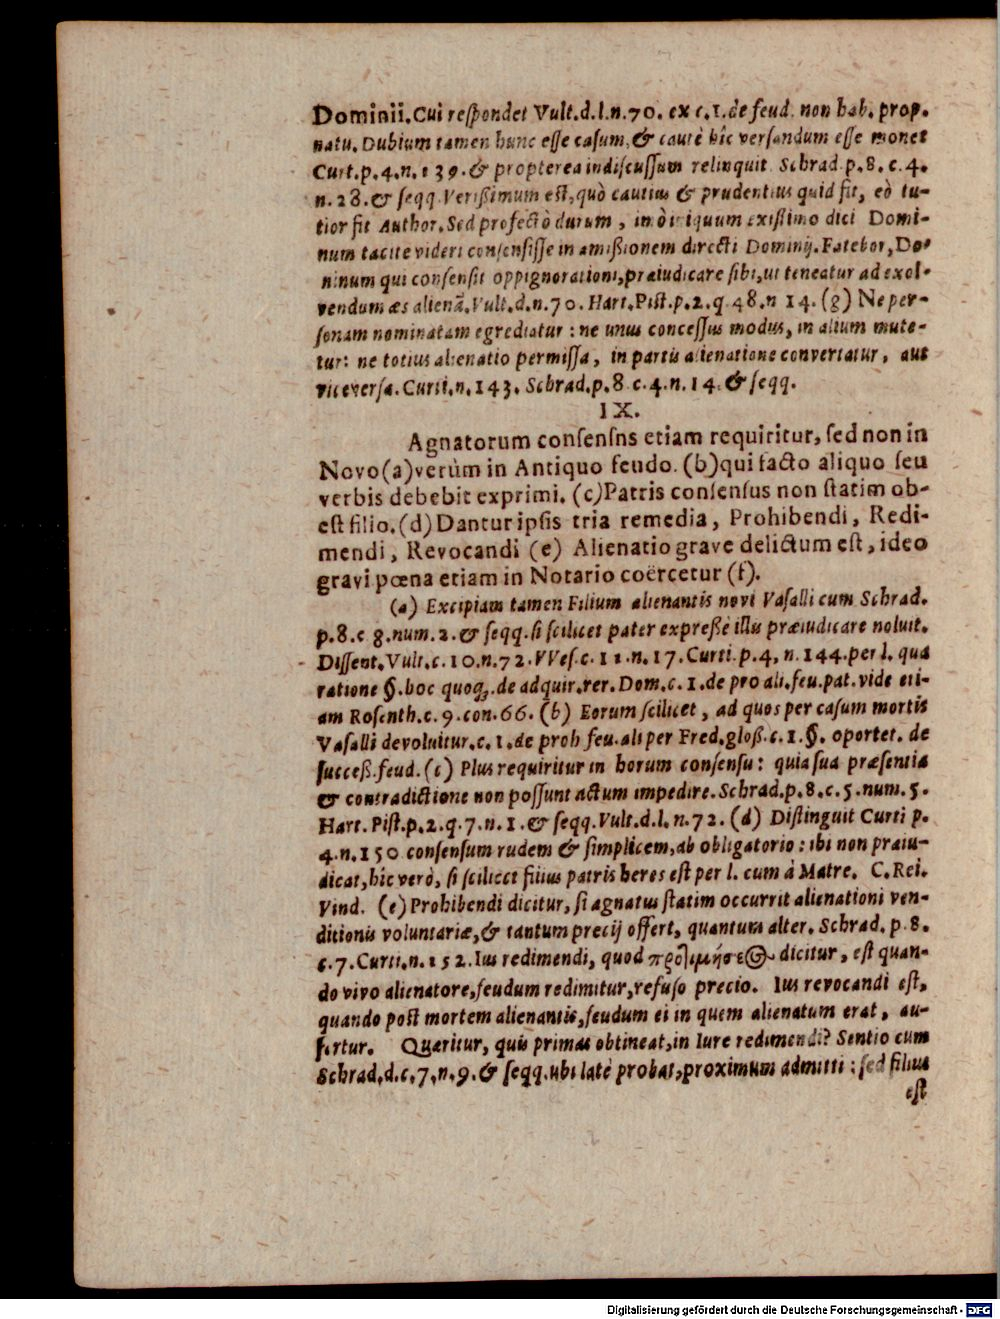 Dominii. Cui respondet Vult.d.l.n.70. ex c.1.de feud. non hab. prop.
natu. Dubium tamen hunc esse casum, & cautè hîc versandum esse monet
Curt.p.4.n.139.& propterea indiscussum relinquit. Schrad.p.8.c.4.
n.28.& seqq. Verißimum est, quò cautius & prudentius quid fit, eò tu-
tior fit Author. Sed profectò durum, imò iniquum existimo dici Domi-
num tacite videri consensisse in amißionem directi Dominij. Fatebor, Do-
minum qui consensit oppignorationi, præiudicare sibi, ut teneatur ad exol-
vendum æs alienũ. Vult.d.n.70. Hart. Pist.p.2.q.48.n 14. (g) Ne per-
sonam nominatam egrediatur : ne unus concessus modus, in alium mute-
tur: ne totius alienatio permissa, in partis alienatione convertatur, aut
viceversa. Curti.n.143. Schrad.p.8.c.4.n.14.& seqq.
IX.
Agnatorum consensns etiam requiritur, sed non in
Novo (a) verùm in Antiquo feudo. (b) qui facto aliquo seu
verbis debebit exprimi. (c) Patris consensus non statim ob-
est filio. (d) Dantur ipsis tria remedia, Prohibendi, Redi-
mendi, Revocandi (e) Alienatio grave delictum est, ideo
gravi pœna etiam in Notario coërcetur (f).
(a) Excipiam tamen Filium alienantis novi Vasalli cum Schrad.
p.8.c 8.num.2.& seqq. si scilicet pater expreßè illi præiudicare noluit.
Dissent. Vult.c.10.n.72. VVes.c.11.n.17. Curti.p.4.n.144.per l. qua
ratione §.hoc quoq;.de adquir.rer. Dom.c.1.de pro ali.feu.pat.vide eti-
am Rosenth.c.9.con.66. (b) Eorum scilicet, ad quos per casum mortis
Vasalli devoluitur.c.1.de proh feu.ali per Fred.gloß.c.1.§. oportet. de
succeß.feud. (c) Plus requiritur in horum consensu: quia sua præsentia
& contradictione non possunt actum impedire. Schrad.p.8.c.5.num.5.
Hart. Pist.p.2.q.7.n.1.& seqq. Vult.d.l.n.72. (d) Distinguit Curti p.
4.n.150 consensum rudem & simplicem, ab obligatorio : ibi non præiu-
dicat, hîc verò, si scilicet filius patris heres est per l. cum à Matre. C. Rei.
Vind. (e) Prohibendi dicitur, si agnatus statim occurrit alienationi ven-
ditionis voluntariæ, & tantum precij offert, quantum alter. Schrad. p.8.
c.7. Curti.n.152. Ius redimendi, quod προτιμήσεως dicitur, est quan-
do vivo alienatore, feudum redimitur, refuso precio. Ius revocandi est,
quando post mortem alienantis, feudum ei in quem alienatum erat, au-
fertur. Quæritur, quis primas obtineat, in Iure redimendi? Sentio cum
Schrad.d.c.7.n.9.& seqq. ubi latè probat, proximum admitti : sed filius
est
Digitalisierung gefördert durch die Deutsche Forschungsgemeinschaft - DFG